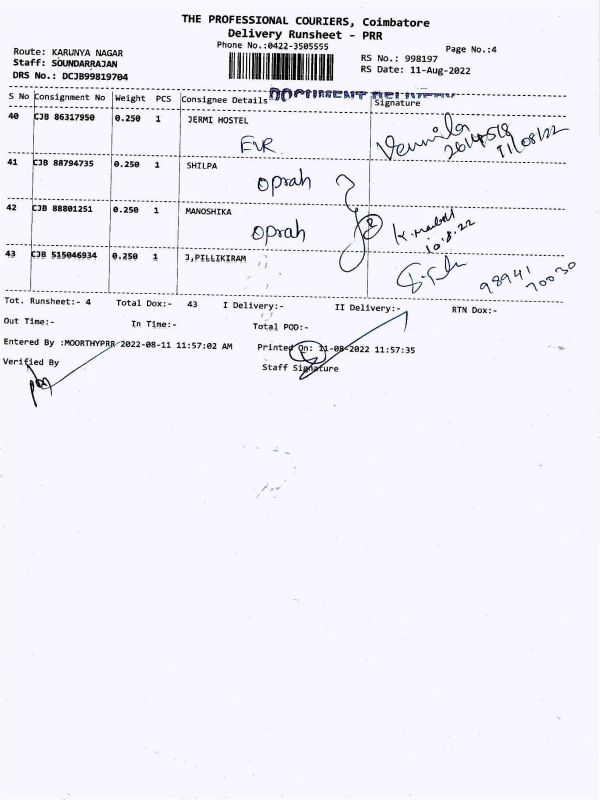 THE PROFESSIONAL COURIERS, Coimbatore
Delivery Runsheet - PRR
Phone No.:0422-3505555
Page No.:4
Route: KARUNYA NAGAR
Staff: SOUNDARRAJAN
DRS No.: DCJB99819704
RS No.: 998197
RS Date: 11-Aug-2022
S No Consignment No Weight PCS Consignee Details Signature
DOCUMENT
40 CJB 86317950 0.250 1 JERMI HOSTEL
EVR
Vennila
11/08/22
41 CJB 88794735 0.250 1 SHILPA
Oprah
42 CJB 88801251 0.250 1 MANOSHIKA
Oprah
10.8.22
43 CJB 515046934 0.250 1 J,PILLIKIRAM
98941
70030
Tot. Runsheet:- 4 Total Dox:- 43 I Delivery:- II Delivery:- RTN Dox:-
Out Time:- In Time:- Total POD:-
Entered By :MOORTHYPRR 2022-08-11 11:57:02 AM Printed On: 11-08-2022 11:57:35
Verified By Staff Signature